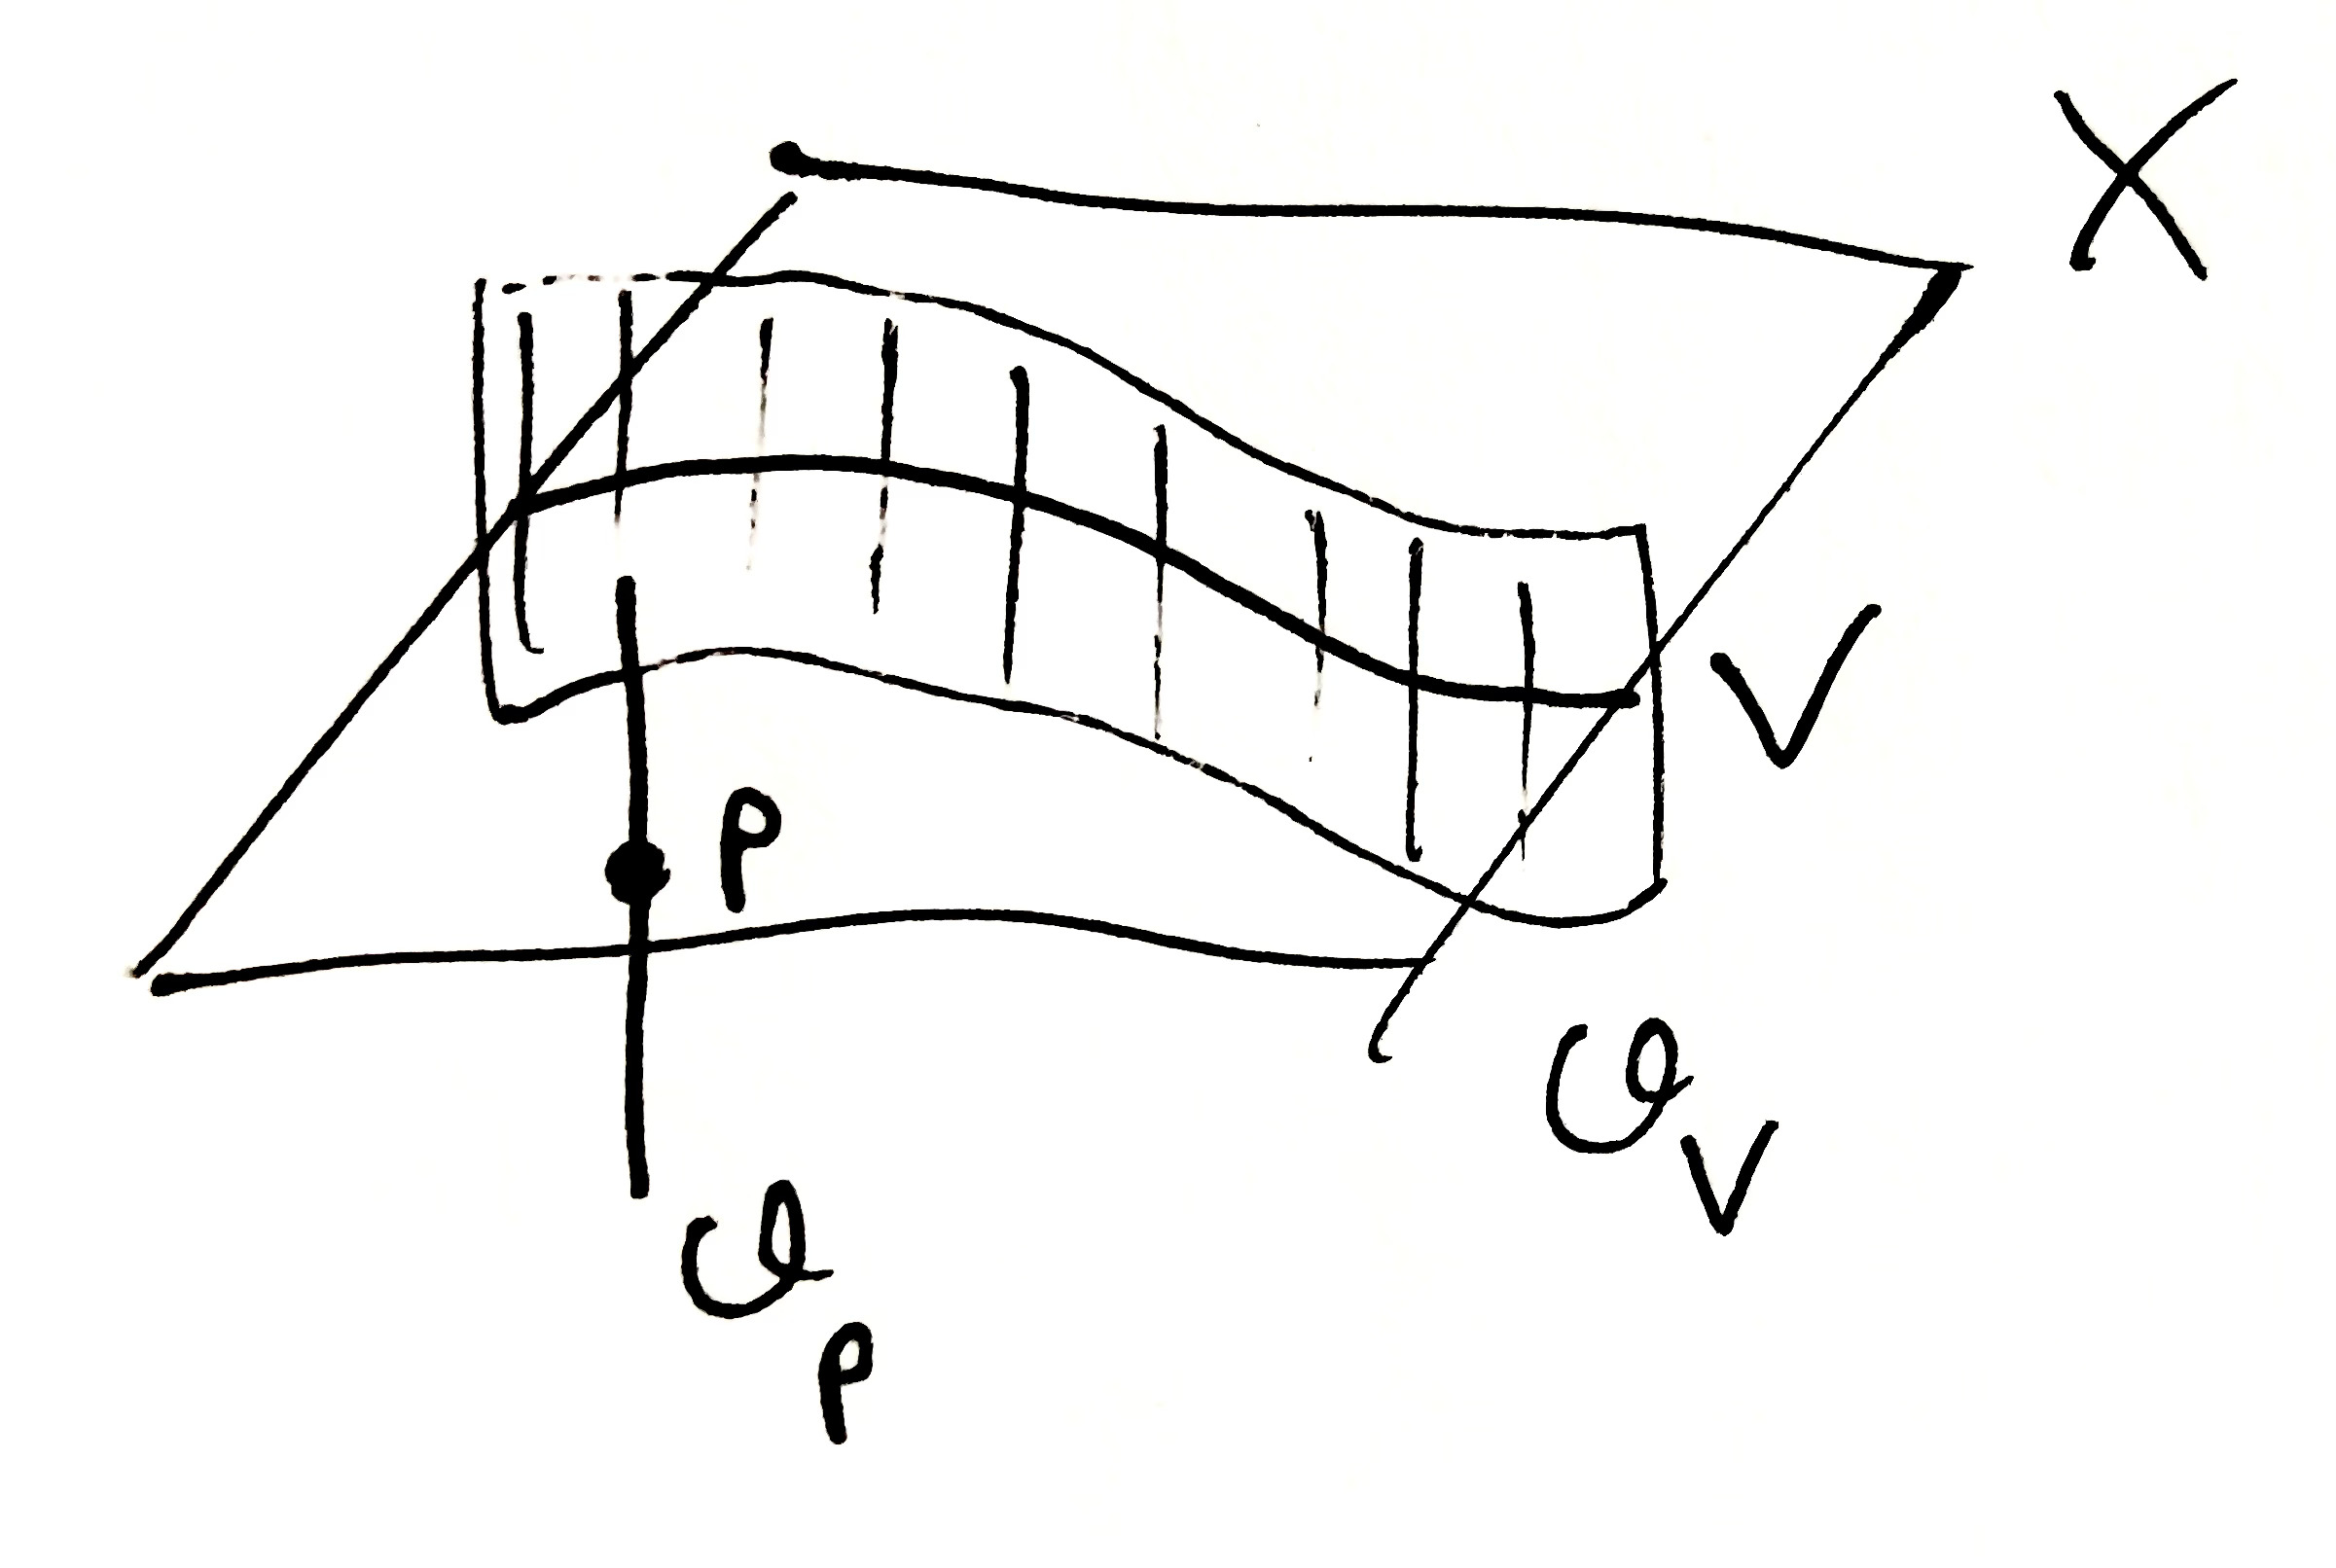 X
V
P
𝒪
V
𝒪
P